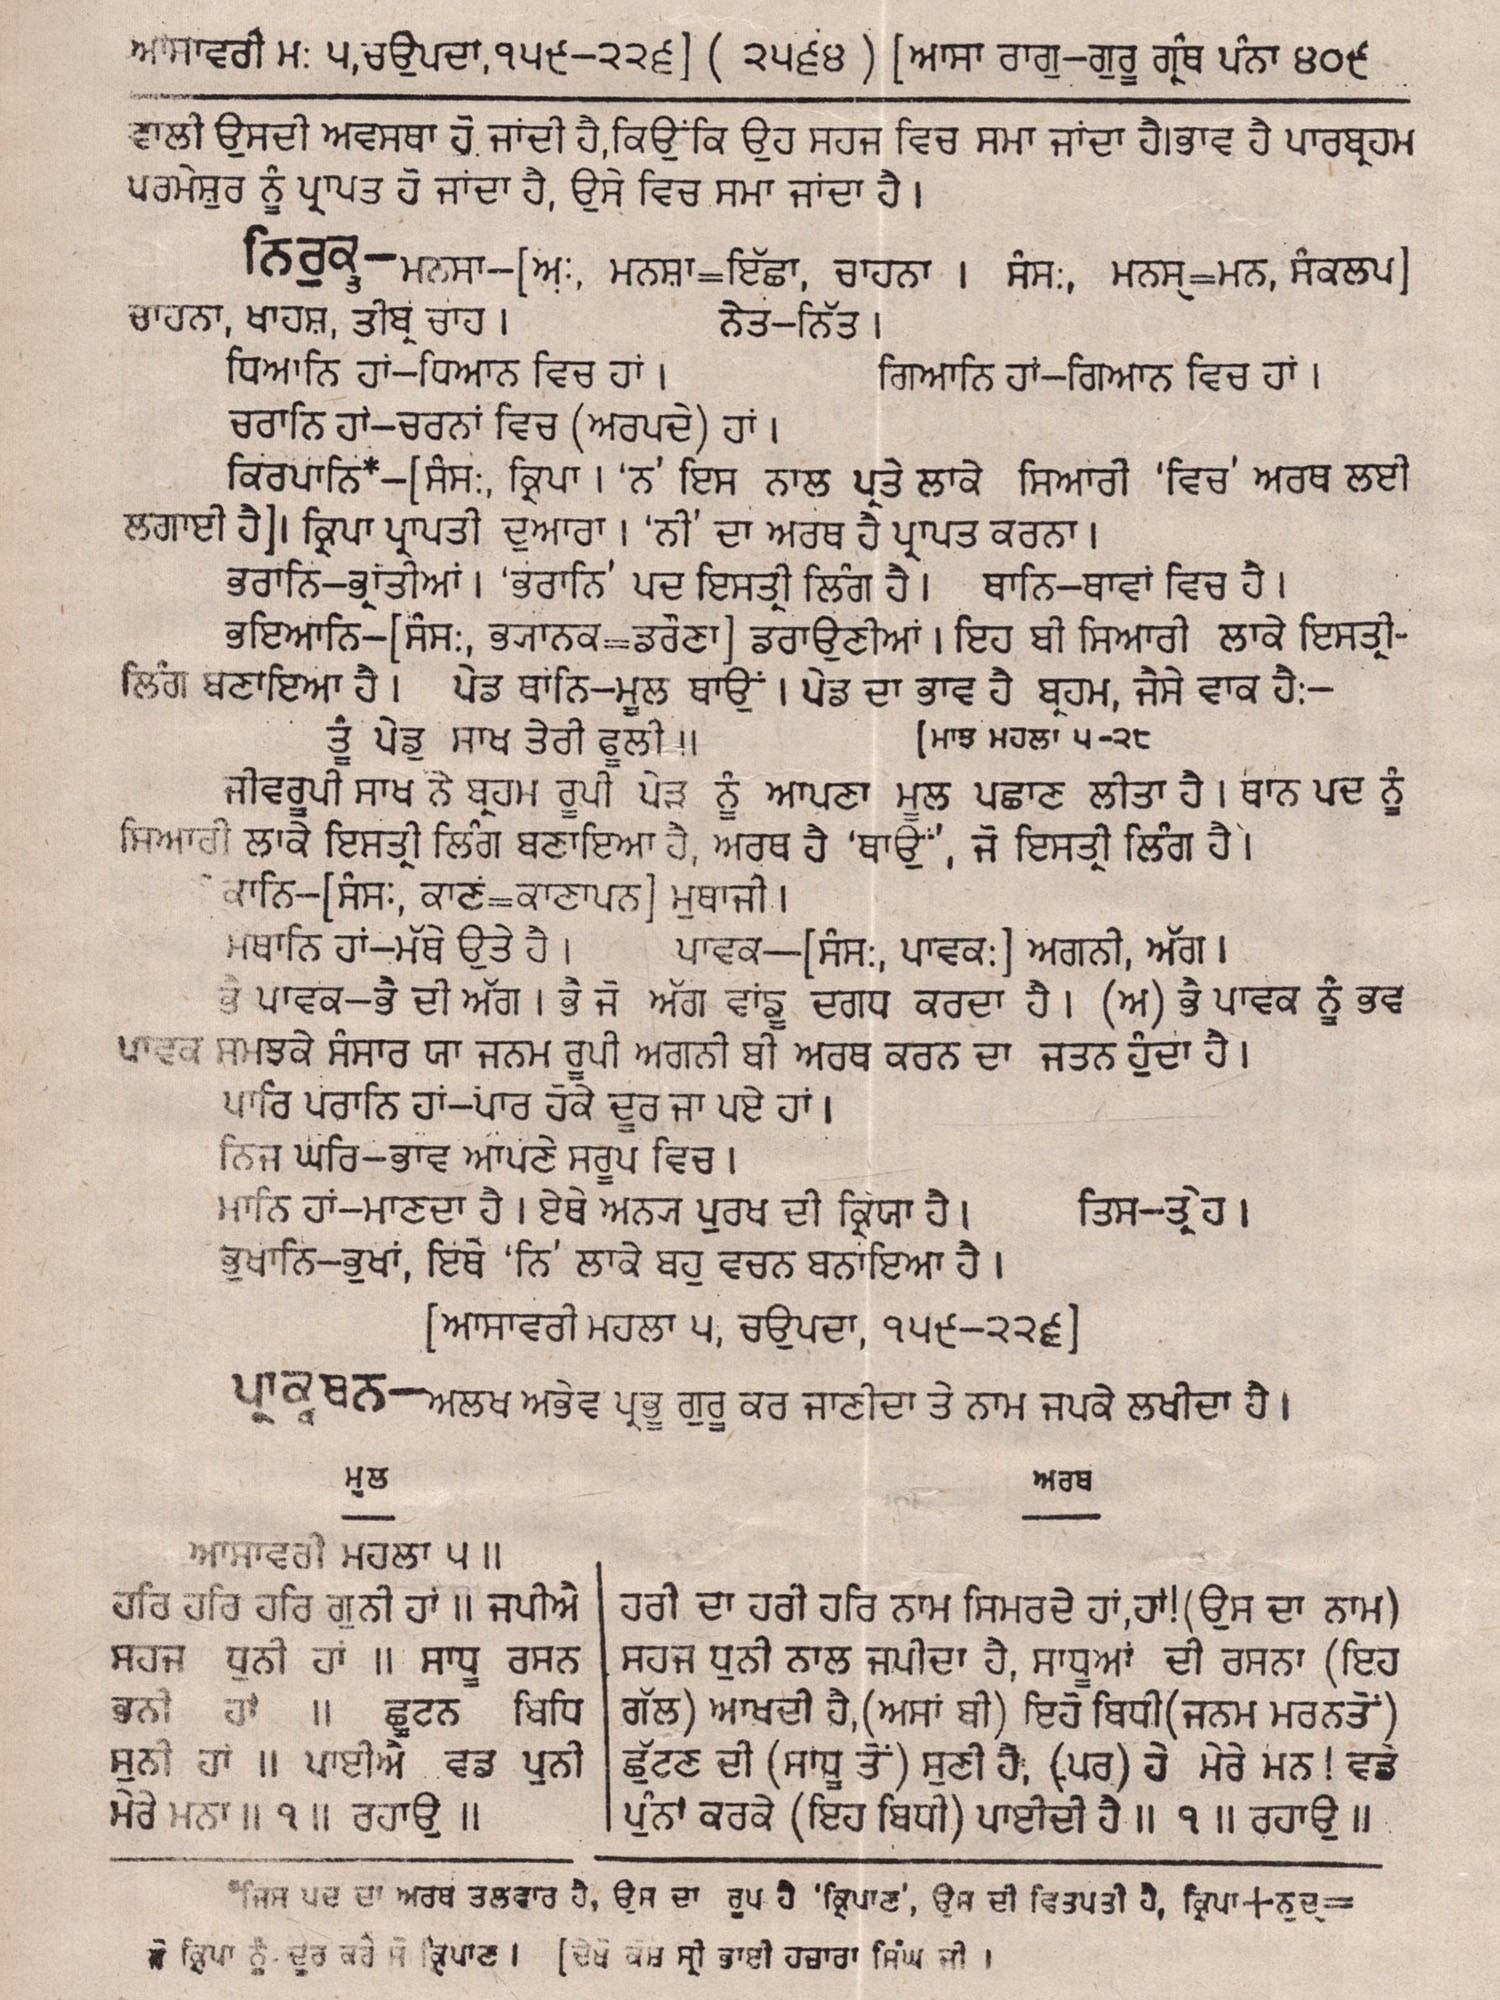 ਆਸਾਵਰੀ ਮ: ੫,ਚਉਪਦਾ,੧੫੯–੨੨੬] ( ੨੫੬੪ ) [ਆਸਾ ਰਾਗੁ–ਗੁਰੂ ਗ੍ਰੰਥ ਪੰਨਾ ੪੦੯
ਵਾਲੀ ਉਸਦੀ ਅਵਸਥਾ ਹੋ ਜਾਂਦੀ ਹੈ,ਕਿਉਂਕਿ ਉਹ ਸਹਜ ਵਿਚ ਸਮਾ ਜਾਂਦਾ ਹੈ।ਭਾਵ ਹੈ ਪਾਰਬ੍ਰਹਮ
ਪਰਮੇਸ਼ੁਰ ਨੂੰ ਪ੍ਰਾਪਤ ਹੋ ਜਾਂਦਾ ਹੈ, ਉਸੇ ਵਿਚ ਸਮਾ ਜਾਂਦਾ ਹੈ।
ਨਿਰੁਕ੍ਤ–ਮਨਸਾ–[ਅ਼:, ਮਨਸ਼ਾ=ਇੱਛਾ, ਚਾਹਨਾ । ਸੰਸ:, ਮਨਸ੍=ਮਨ, ਸੰਕਲਪ]
ਚਾਹਨਾ, ਖਾਹਸ਼, ਤੀਬ੍ਰ ਚਾਹ। ਨੇਤ–ਨਿੱਤ।
ਧਿਆਨਿ ਹਾਂ–ਧਿਆਨ ਵਿਚ ਹਾਂ। ਗਿਆਨਿ ਹਾਂ–ਗਿਆਨ ਵਿਚ ਹਾਂ।
ਚਰਾਨਿ ਹਾਂ–ਚਰਨਾਂ ਵਿਚ (ਅਰਪਦੇ) ਹਾਂ।
ਕਿਰਪਾਨਿ*–[ਸੰਸ:, ਕ੍ਰਿਪਾ। ‘ਨ’ ਇਸ ਨਾਲ ਪ੍ਰਤੇ ਲਾਕੇ ਸਿਆਰੀ ‘ਵਿਚ’ ਅਰਥ ਲਈ
ਲਗਾਈ ਹੈ]। ਕ੍ਰਿਪਾ ਪ੍ਰਾਪਤੀ ਦੁਆਰਾ। ‘ਨੀ’ ਦਾ ਅਰਥ ਹੈ ਪ੍ਰਾਪਤ ਕਰਨਾ।
ਭਰਾਨਿ–ਭ੍ਰਾਂਤੀਆਂ। ‘ਭਰਾਨਿ’ ਪਦ ਇਸਤ੍ਰੀ ਲਿੰਗ ਹੈ। ਥਾਨਿ–ਥਾਵਾਂ ਵਿਚ ਹੈ।
ਭਇਆਨਿ–[ਸੰਸ:, ਭ੍ਯਾਨਕ=ਡਰੌਣਾ] ਡਰਾਉਣੀਆਂ। ਇਹ ਬੀ ਸਿਆਰੀ ਲਾਕੇ ਇਸਤ੍ਰੀ-
ਲਿੰਗ ਬਣਾਇਆ ਹੈ। ਪੇਡ ਥਾਨਿ–ਮੂਲ ਥਾਉਂ। ਪੇਡ ਦਾ ਭਾਵ ਹੈ ਬ੍ਰਹਮ, ਜੈਸੇ ਵਾਕ ਹੈ:–
ਤੂੰ ਪੇਡੁ ਸਾਖ ਤੇਰੀ ਫੂਲੀ॥ [ਮਾਝ ਮਹਲਾ ੫-੨੮
ਜੀਵਰੂਪੀ ਸਾਖ ਨੇ ਬ੍ਰਹਮ ਰੂਪੀ ਪੇੜ ਨੂੰ ਆਪਣਾ ਮੂਲ ਪਛਾਣ ਲੀਤਾ ਹੈ। ਥਾਨ ਪਦ ਨੂੰ
ਸਿਆਰੀ ਲਾਕੇ ਇਸਤ੍ਰੀ ਲਿੰਗ ਬਣਾਇਆ ਹੈ, ਅਰਥ ਹੈ ‘ਥਾਉਂ’, ਜੋ ਇਸਤ੍ਰੀ ਲਿੰਗ ਹੈ।
ਕਾਨਿ–[ਸੰਸ:, ਕਾਣੰ=ਕਾਣਾਪਨ] ਮੁਥਾਜੀ।
ਮਥਾਨਿ ਹਾਂ–ਮੱਥੇ ਉਤੇ ਹੈ। ਪਾਵਕ–[ਸੰਸ:, ਪਾਵਕ:] ਅਗਨੀ, ਅੱਗ।
ਭੈ ਪਾਵਕ–ਭੈ ਦੀ ਅੱਗ। ਭੈ ਜੋ ਅੱਗ ਵਾਂਙੂ ਦਗਧ ਕਰਦਾ ਹੈ। (ਅ) ਭੈ ਪਾਵਕ ਨੂੰ ਭਵ
ਪਾਵਕ ਸਮਝਕੇ ਸੰਸਾਰ ਯਾ ਜਨਮ ਰੂਪੀ ਅਗਨੀ ਬੀ ਅਰਥ ਕਰਨ ਦਾ ਜਤਨ ਹੁੰਦਾ ਹੈ।
ਪਾਰਿ ਪਰਾਨਿ ਹਾਂ–ਪਾਰ ਹੋਕੇ ਦੂਰ ਜਾ ਪਏ ਹਾਂ।
ਨਿਜ ਘਰਿ–ਭਾਵ ਆਪਣੇ ਸਰੂਪ ਵਿਚ।
ਮਾਨਿ ਹਾਂ–ਮਾਣਦਾ ਹੈ। ਏਥੇ ਅਨ੍ਯ ਪੁਰਖ ਦੀ ਕ੍ਰਿਯਾ ਹੈ। ਤਿਸ–ਤ੍ਰੇਹ।
ਭੁਖਾਨਿ–ਭੁਖਾਂ, ਇਥੇ ‘ਨਿ’ ਲਾਕੇ ਬਹੁ ਵਚਨ ਬਨਾਇਆ ਹੈ।
[ਆਸਾਵਰੀ ਮਹਲਾ ੫, ਚਉਪਦਾ, ੧੫੯–੨੨੬]
ਪ੍ਰਾਕ੍ਕਥਨ–ਅਲਖ ਅਭੇਵ ਪ੍ਰਭੂ ਗੁਰੂ ਕਰ ਜਾਣੀਦਾ ਤੇ ਨਾਮ ਜਪਕੇ ਲਖੀਦਾ ਹੈ।
ਮੂਲ
ਆਸਾਵਰੀ ਮਹਲਾ ੫॥
ਹਰਿ ਹਰਿ ਹਰਿ ਗੁਨੀ ਹਾਂ॥ ਜਪੀਐ
ਸਹਜ ਧੁਨੀ ਹਾਂ ॥ ਸਾਧੂ ਰਸਨ
ਭਨੀ ਹਾਂ ॥ ਛੂਟਨ ਬਿਧਿ
ਸੁਨੀ ਹਾਂ ॥ ਪਾਈਐ ਵਡ ਪੁਨੀ
ਮੇਰੇ ਮਨਾ॥ ੧॥ ਰਹਾਉ ॥
ਅਰਥ
ਹਰੀ ਦਾ ਹਰੀ ਹਰਿ ਨਾਮ ਸਿਮਰਦੇ ਹਾਂ,ਹਾਂ!(ਉਸ ਦਾ ਨਾਮ)
ਸਹਜ ਧੁਨੀ ਨਾਲ ਜਪੀਦਾ ਹੈ, ਸਾਧੂਆਂ ਦੀ ਰਸਨਾ (ਇਹ
ਗੱਲ) ਆਖਦੀ ਹੈ,(ਅਸਾਂ ਬੀ) ਇਹੋ ਬਿਧੀ(ਜਨਮ ਮਰਨਤੋਂ)
ਛੁੱਟਣ ਦੀ (ਸਾਧੂ ਤੋਂ) ਸੁਣੀ ਹੈ, (ਪਰ) ਹੇ ਮੇਰੇ ਮਨ! ਵਡੇ
ਪੁੰਨਾਂ ਕਰਕੇ (ਇਹ ਬਿਧੀ) ਪਾਈਦੀ ਹੈ॥ ੧॥ ਰਹਾਉ॥
*ਜਿਸ ਪਦ ਦਾ ਅਰਥ ਤਲਵਾਰ ਹੈ, ਉਸ ਦਾ ਰੂਪ ਹੈ ‘ਕ੍ਰਿਪਾਣ’, ਉਸ ਦੀ ਵਿਤਪਤੀ ਹੈ, ਕ੍ਰਿਪਾ+ਨੁਦ੍=
ਜੋ ਕ੍ਰਿਪਾ ਨੂੰ ਦੂਰ ਕਰੇ ਸੋ ਕ੍ਰਿਪਾਣ। [ਦੇਖੋ ਕੋਸ਼ ਸ੍ਰੀ ਭਾਈ ਹਜ਼ਾਰਾ ਸਿੰਘ ਜੀ।